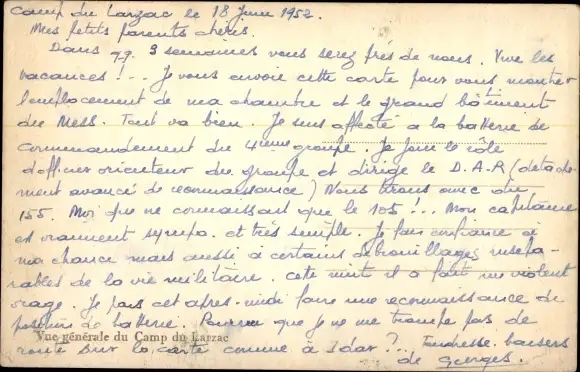 Camp du Larzac le 18 Juin 1952.
Mes petits parents chéris.
Dans qq. 3 semaines vous serez près de nous. Vive les
vacances !.. Je vous envoie cette carte pour vous montrer
l'emplacement de ma chambre et le grand bâtiment
du Mess. Tout va bien. Je suis affecté a la batterie de
commandement du 4ième groupe. Je joue le rôle
d'officier orienteur du groupe et dirige le D.A.R (détache-
ment avancé de reconnaissance) Nous tirons avec du
155. Moi que ne connaissait que le 105 !... Mon capitaine
est vraiment sympa. et très simple. Je fais confiance a
ma chance mais aussi a certains débrouillages insépa-
rables de la vie militaire. Cette nuit il a fait un violent
orage. Je pars cet après-midi faire une reconnaissance de
position de batterie. Pourvu que je ne me trompe pas de
Vue générale du Camp du Larzac
route sur la carte comme à Idar ?.. Tendresse. baisers
de Georges.